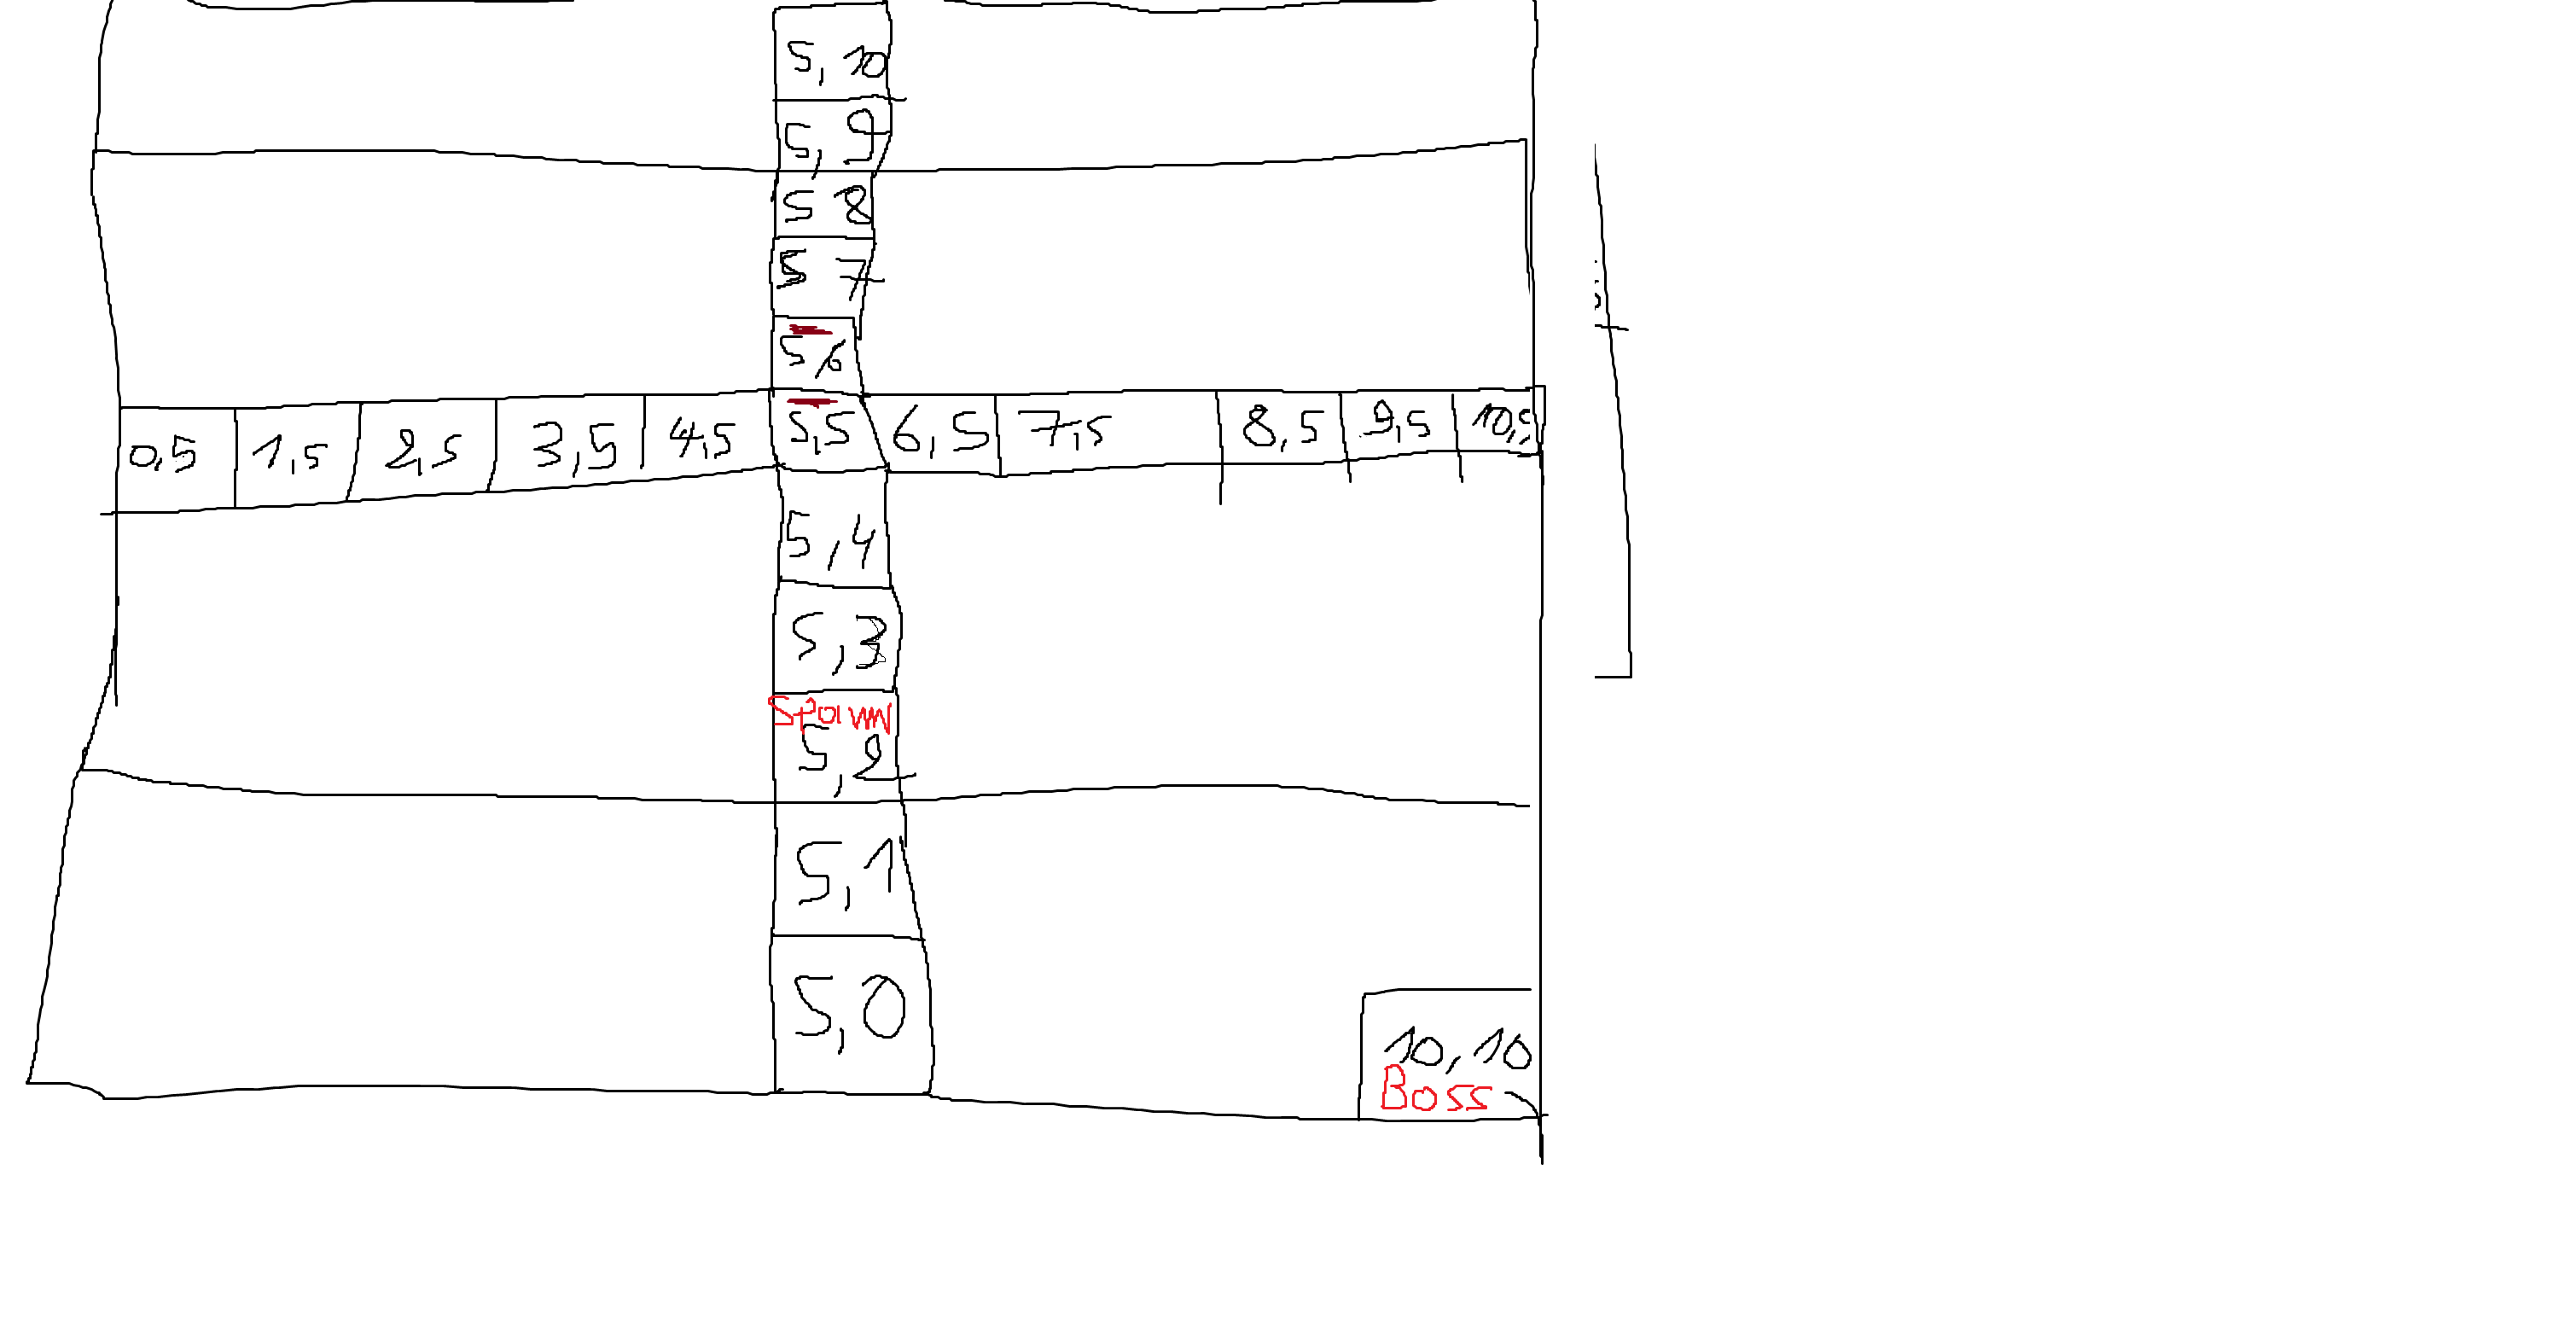 5,10
5,9
5 8
5 7
5 6
0,5 1,5 2,5 3,5 4,5 5,5 6,5 7,5 8,5 9,5 10,5
5,4
5,3
Spawn
5,2
5,1
5,0
10,10
Boss